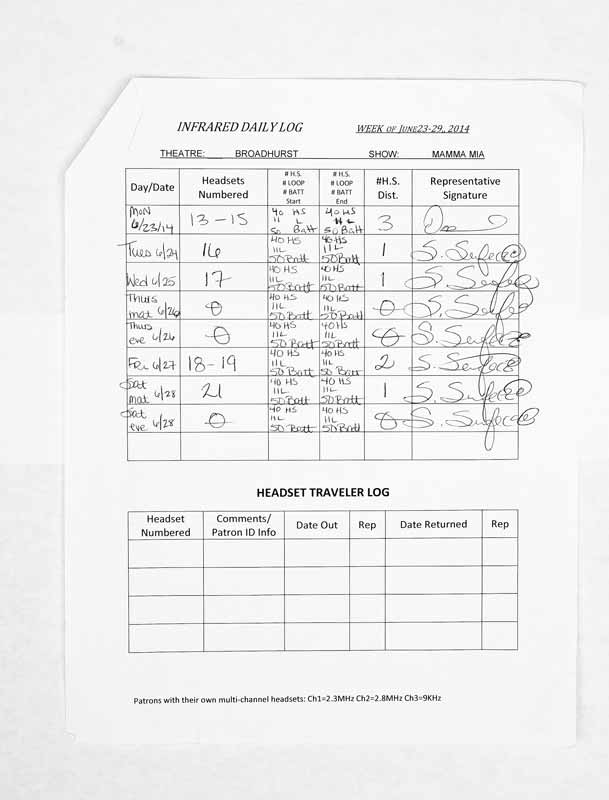 INFRARED DAILY LOG WEEK OF JUNE23-29,, 2014
THEATRE: BROADHURST SHOW: MAMMA MIA
Day/Date Headsets Numbered # H.S. # LOOP # BATT Start # H.S. # LOOP # BATT End #H.S. Dist. Representative Signature
MON 6/23/14 13-15 40 HS 11 L 50 Batt 40 HS 11 L 50 Batt 3
Tues 6/24 16 40 HS 11L 50 Batt 40 HS 11L 50 Batt 1 S.
Wed 6/25 17 40 HS 11L 50 Batt 40 HS 11L 50 Batt 1 S.
Thurs mat 6/26 0 40 HS 11L 50 Batt 40 HS 11L 50 Batt 0 S.
Thus eve 6/26 0 40 HS 11L 50 Batt 40 HS 11L 50 Batt 0 S.
Fri 6/27 18-19 40 HS 11L 50 Batt 40 HS 11L 50 Batt 2 S.
Sat mat 6/28 21 40 HS 11L 50 Batt 40 HS 11L 50 Batt 1 S.
Sat eve 6/28 0 40 HS 11L 50 Batt 40 HS 11L 50 Batt 0 S.
HEADSET TRAVELER LOG
Headset Numbered Comments/ Patron ID Info Date Out Rep Date Returned Rep
Patrons with their own multi-channel headsets: Ch1=2.3MHz Ch2=2.8MHz Ch3=9KHz